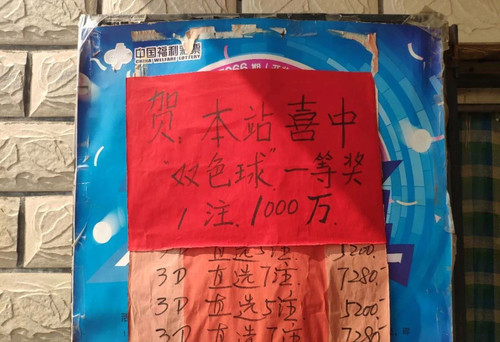 中国福利彩票
CHINA WELFARE LOTTERY
贺：本站喜中
"双色球"一等奖
1注.1000万.
3D 直选5注 5200.-
3D 直选7注 7280.-
3D 直选5注 5200.-
3D 直选7注 7280